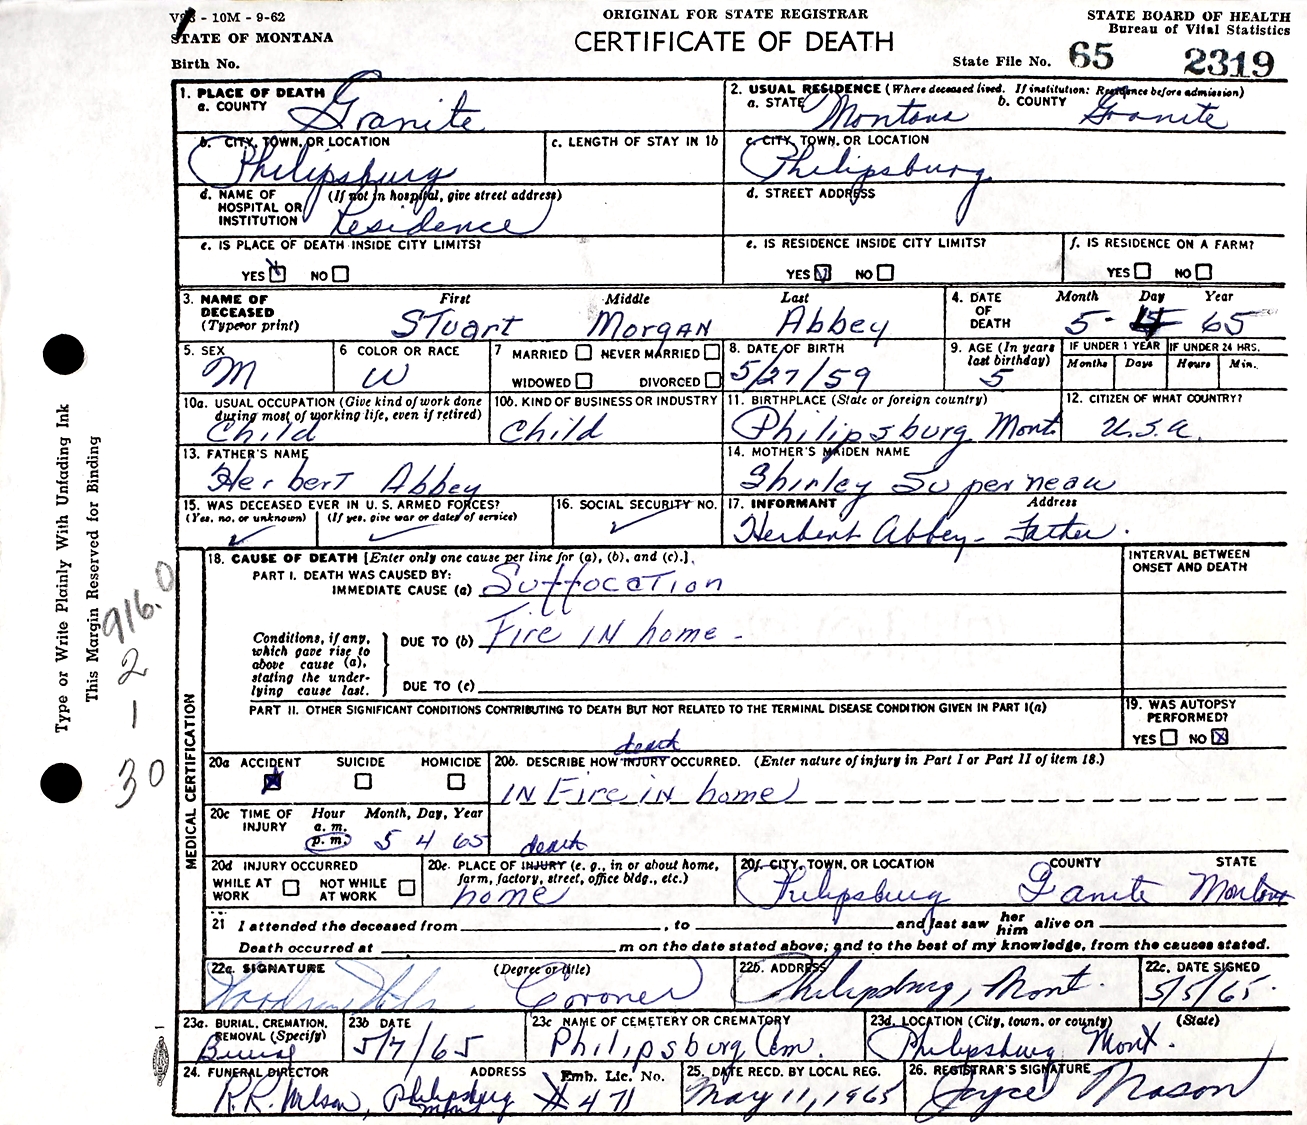 VS3 - 10M - 9-62
ORIGINAL FOR STATE REGISTRAR
STATE BOARD OF HEALTH
STATE OF MONTANA
CERTIFICATE OF DEATH
Bureau of Vital Statistics
Birth No.
State File No. 65 2319
1. PLACE OF DEATH
a. COUNTY Granite
2. USUAL RESIDENCE (Where deceased lived. If institution: Residence before admission)
a. STATE Montana b. COUNTY Granite
b. CITY, TOWN, OR LOCATION Philipsburg
c. LENGTH OF STAY IN 1b
c. CITY, TOWN, OR LOCATION Philipsburg
d. NAME OF HOSPITAL OR INSTITUTION (If not in hospital, give street address) Residence
d. STREET ADDRESS
e. IS PLACE OF DEATH INSIDE CITY LIMITS?
YES NO
e. IS RESIDENCE INSIDE CITY LIMITS?
YES NO
f. IS RESIDENCE ON A FARM?
YES NO
3. NAME OF DECEASED (Type or print)
First Middle Last
Stuart Morgan Abbey
4. DATE OF DEATH
Month Day Year
5- 4 65
5. SEX M
6 COLOR OR RACE W
7 MARRIED NEVER MARRIED
WIDOWED DIVORCED
8. DATE OF BIRTH 5/27/59
9. AGE (In years last birthday) 5
IF UNDER 1 YEAR IF UNDER 24 HRS.
Months Days Hours Min.
10a. USUAL OCCUPATION (Give kind of work done during most of working life, even if retired) Child
10b. KIND OF BUSINESS OR INDUSTRY Child
11. BIRTHPLACE (State or foreign country) Philipsburg Mont
12. CITIZEN OF WHAT COUNTRY? U.S.A.
13. FATHER'S NAME Herbert Abbey
14. MOTHER'S MAIDEN NAME Shirley Superneau
15. WAS DECEASED EVER IN U. S. ARMED FORCES?
(Yes, no, or unknown) (If yes, give war or dates of service)
16. SOCIAL SECURITY NO.
17. INFORMANT Address
Herbert Abbey - Father.
MEDICAL CERTIFICATION
18. CAUSE OF DEATH [Enter only one cause per line for (a), (b), and (c).]
INTERVAL BETWEEN ONSET AND DEATH
PART I. DEATH WAS CAUSED BY:
IMMEDIATE CAUSE (a) Suffocation
Conditions, if any, which gave rise to above cause (a), stating the underlying cause last.
DUE TO (b) Fire IN home -
DUE TO (c)
PART II. OTHER SIGNIFICANT CONDITIONS CONTRIBUTING TO DEATH BUT NOT RELATED TO THE TERMINAL DISEASE CONDITION GIVEN IN PART I(a)
19. WAS AUTOPSY PERFORMED?
YES NO
20a ACCIDENT SUICIDE HOMICIDE
death
20b. DESCRIBE HOW INJURY OCCURRED. (Enter nature of injury in Part I or Part II of item 18.)
IN Fire IN home
20c TIME OF INJURY
Hour Month, Day, Year
a. m.
p. m. 5 4 65
20d INJURY OCCURRED
WHILE AT WORK NOT WHILE AT WORK
death
20e. PLACE OF INJURY (e. g., in or about home, farm, factory, street, office bldg., etc.)
home
20f. CITY, TOWN, OR LOCATION COUNTY STATE
Philipsburg Ganite Montana
21 I attended the deceased from , to and last saw her him alive on
Death occurred at m on the date stated above; and to the best of my knowledge, from the causes stated.
22a. SIGNATURE (Degree or title)
Coroner
22b. ADDRESS Philipsburg, Mont.
22c. DATE SIGNED 5/5/65.
23a. BURIAL, CREMATION, REMOVAL (Specify) Burial
23b DATE 5/7/65
23c NAME OF CEMETERY OR CREMATORY Philipsburg Cem.
23d. LOCATION (City, town, or county) (State)
Philipsburg Mont.
24. FUNERAL DIRECTOR ADDRESS Emb. Lic. No.
R.R. Wilson, Philipsburg Mont # 471
25. DATE RECD. BY LOCAL REG. May 11, 1965
26. REGISTRAR'S SIGNATURE Joyce Mason
Type or Write Plainly With Unfading Ink
This Margin Reserved for Binding
916.0
2
1
30